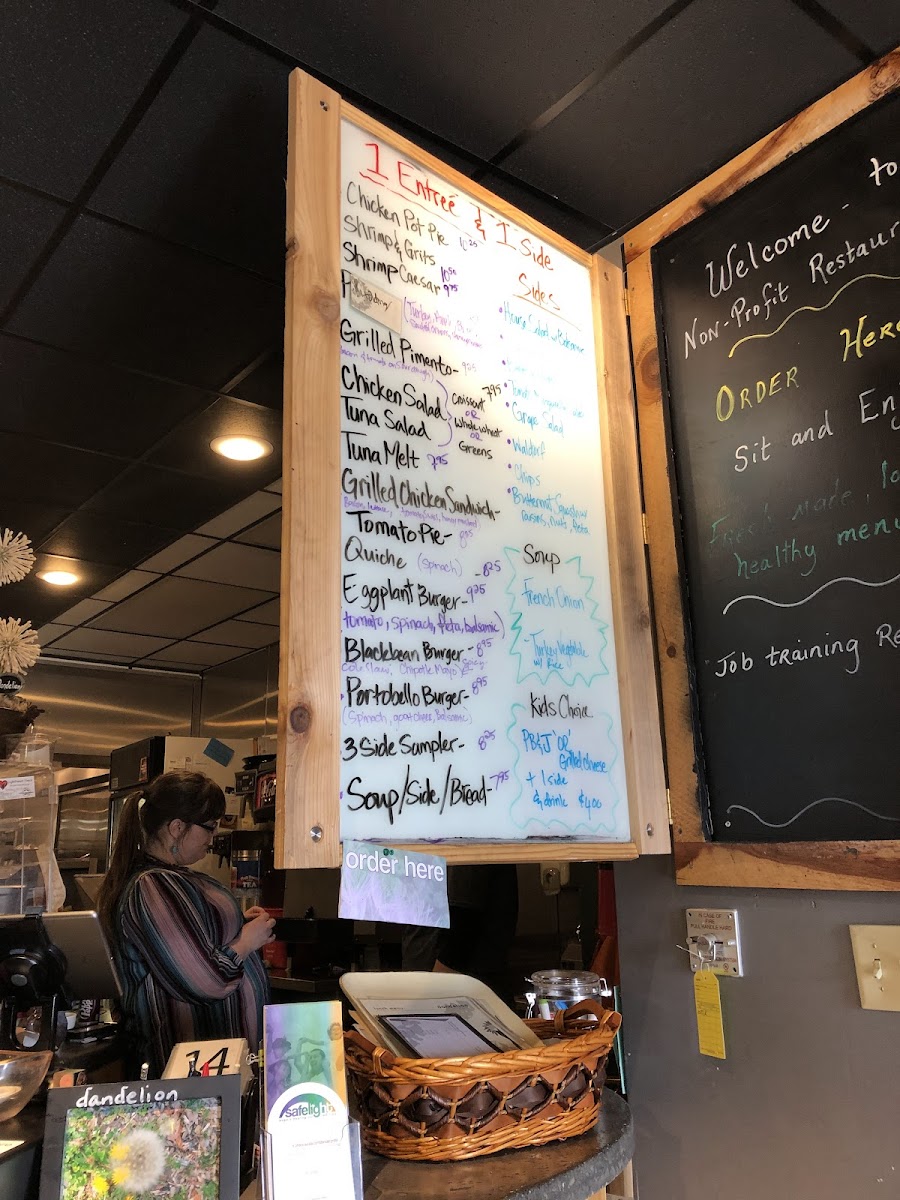 1 Entreé & 1 Side
Chicken Pot Pie 10.25
Shrimp & Grits 10.50
Shrimp Caesar 9.75
(Turkey,
Grilled Pimento- 9.25
Chicken Salad
Tuna Salad
Croissant 7.95
OR
Whole wheat
OR
Greens
Tuna Melt 7.95
Grilled Chicken Sandwich-
Tomato Pie- 8.95
Quiche (Spinach) - 8.25
Eggplant Burger- 9.25
tomato, spinach, feta, balsamic
Blackbean Burger- 8.95
Cole Slaw, Chipotle Mayo
Portobello Burger- 8.95
(Spinach, goat cheese, Balsamic)
3 Side Sampler- 8.25
Soup/Side/Bread- 7.95
Sides
House Salad w/ Balsamic
Grape Salad
Waldorf
Chips
Butternut Squash w/
raisins, nuts, feta
Soup
French Onion
Turkey Vegetable
w/ Rice
Kids Choice
PB&J "OR"
Grilled Cheese
+ 1 side
& drink $4.00
order here
to
Welcome -
Non-Profit Restaur
ORDER HERE
Sit and Enj
Fresh made, lo
healthy menu
Job training Re
14
dandelion
safelight